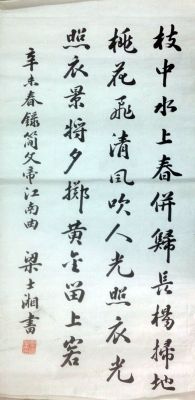 枝中水上春併歸長楊掃地
桃花飛清風吹人光照衣光
照衣景將夕擲黃金留上客
辛未春錄簡文帝江南曲
梁士湘書